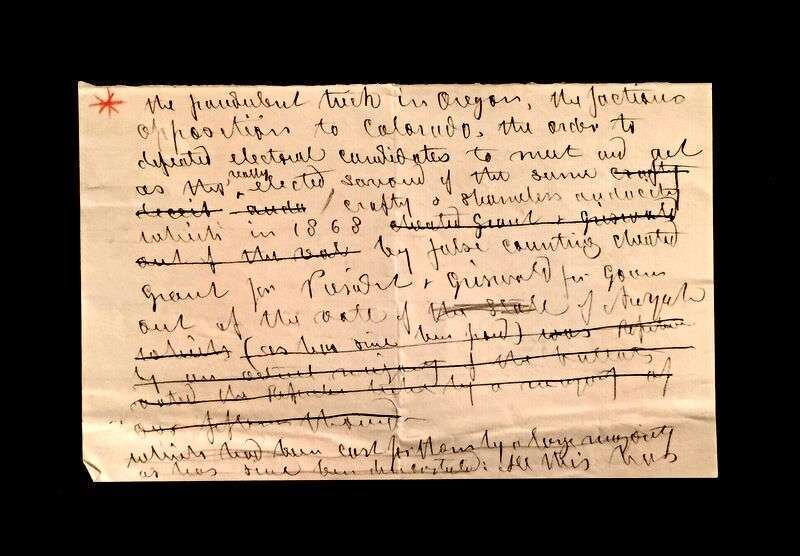 the fraudulent trick in Oregon, the factious
opposition to Colorado, the order to
defeated electoral candidates to meet and act
as tho, really elected, savored of the same crafty
deceit and a / crafty & shameless audacity
which in 1868 cheated Grant & Griswold
out of the vote by false counting cheated
Grant for President & Griswold for Govnr
out of the vote of the State of New York
which (as has since been proved) was
by an actual majority of the ballots
voted the by a majority of
which had been cast for them by a large majority
as has since been demonstrated: All this was